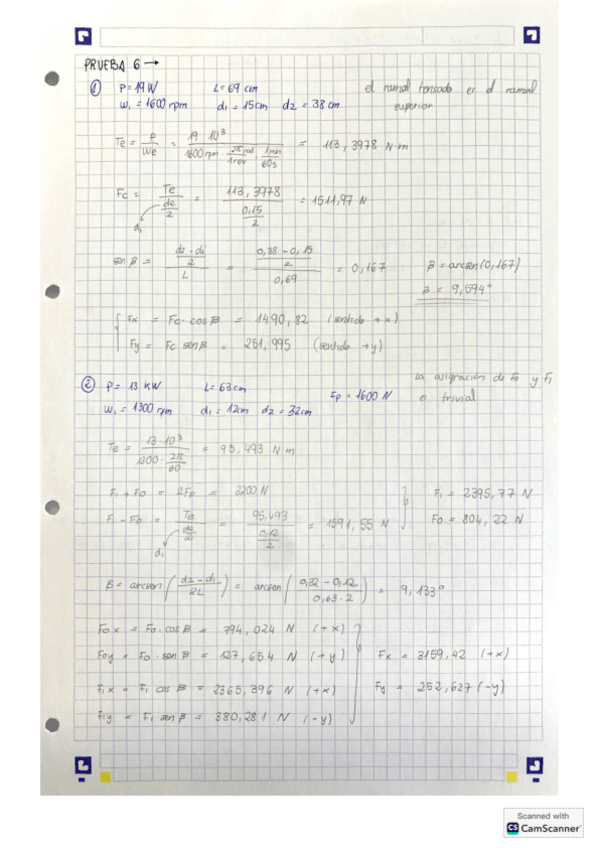 PRUEBA 6 →
① P = 19 W L = 69 cm el ramal tensado es el ramal
ω₁ = 1600 rpm d₁ = 15cm d2 = 38 cm superior
Te = P/We = 19·10³/(1600 rpm · 2π rad/1 rev · 1 min/60s) = 113,3978 N·m
Fc = Te/(de/2) = 113,3978/(0,15/2) = 1511,97 N
d₁
sen β = ((d2 - d1)/2)/L = ((0,38 - 0,15)/2)/0,69 = 0,167 β = arcsen(0,167)
β = 9,594°
Fx = Fc · cos β = 1490,82 (sentido +x)
Fy = Fc sen β = 251,995 (sentido +y)
② P = 13 KW L = 63cm Fp = 1600 N la asignación de F0 y F1
ω₁ = 1300 rpm d₁ = 12cm d2 = 32cm es trivial
Te = 13·10³/(1300 · 2π/60) = 95,493 N m
F₁ + F0 = 2Fp = 3200 N F₁ = 2395,77 N
F₁ - F0 = Te/(de/2) = 95,493/(0,12/2) = 1591,55 N F0 = 804,22 N
d₁
β = arcsen((d2 - d₁)/2L) = arcsen((0,32 - 0,12)/(0,63 · 2)) = 9,133°
F0x = F0 · cos β = 794,024 N (+x)
F0y = F0 · sen β = 127,654 N (+y) Fx = 3159,42 (+x)
F₁x = F₁ cos β = 2365,396 N (+x) Fy = 252,627 (-y)
F₁y = F₁ sen β = 380,281 N (-y)
Scanned with
CS CamScanner